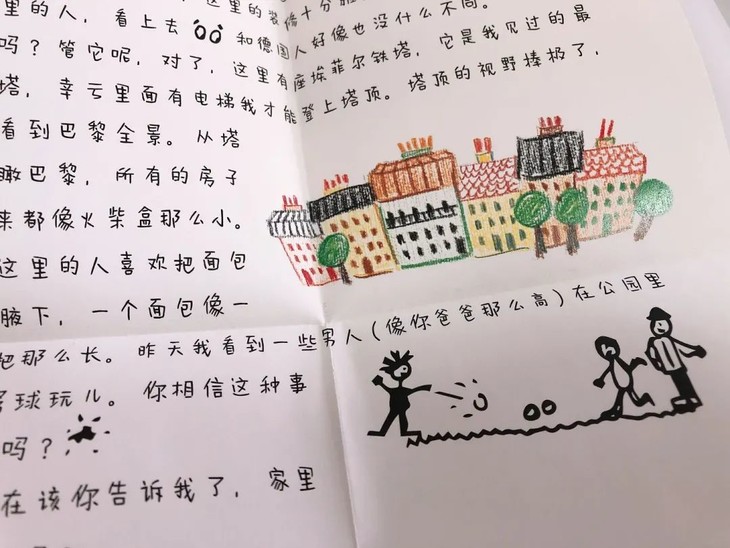 这里的装饰十分
里的人，看上去 和德国人好像也没什么不同。
吗？管它呢，对了，这里有座埃菲尔铁塔，它是我见过的最
塔，幸亏里面有电梯我才能登上塔顶。塔顶的视野棒极了，
看到巴黎全景。从塔
瞰巴黎，所有的房子
来都像火柴盒那么小。
这里的人喜欢把面包
腋下，一个面包像一
把那么长。昨天我看到一些男人（像你爸爸那么高）在公园里
球玩儿。你相信这种事
吗？
在该你告诉我了，家里